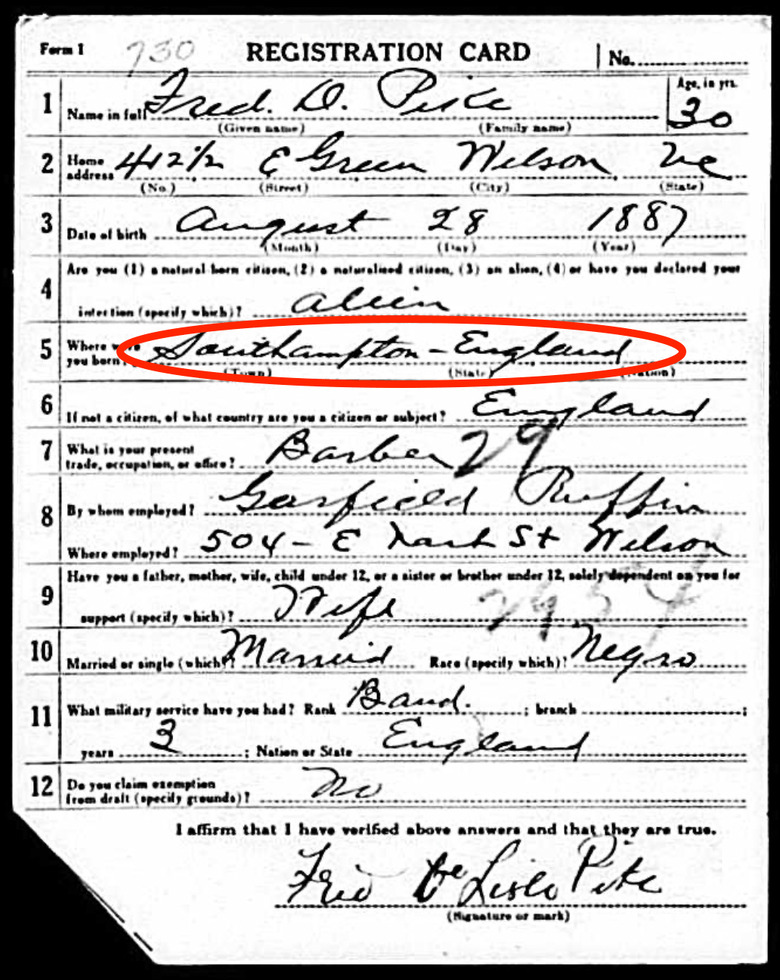 Form 1 730 REGISTRATION CARD No.
1 Name in full Fred. D. Pike Age, in yrs. 30
(Given name) (Family name)
2 Home address 412½ E Green Wilson NC
(No.) (Street) (City) (State)
3 Date of birth August 28 1887
(Month) (Day) (Year)
4 Are you (1) a natural born citizen, (2) a naturalized citizen, (3) an alien, (4) or have you declared your
intention (specify which)? alien
5 Where were you born? Southampton - England
(Town) (State) (Nation)
6 If not a citizen, of what country are you a citizen or subject? England
7 What is your present trade, occupation, or office? Barber 29
8 By whom employed? Garfield Ruffin
Where employed? 504 - E Nash St Wilson
9 Have you a father, mother, wife, child under 12, or a sister or brother under 12, solely dependent on you for
support (specify which)? Wife
10 Married or single (which)? Married Race (specify which)? Negro
11 What military service have you had? Rank Band. ; branch ;
years 3 ; Nation or State England
12 Do you claim exemption from draft (specify grounds)? No
I affirm that I have verified above answers and that they are true.
Fred De Lisle Pike
(Signature or mark)